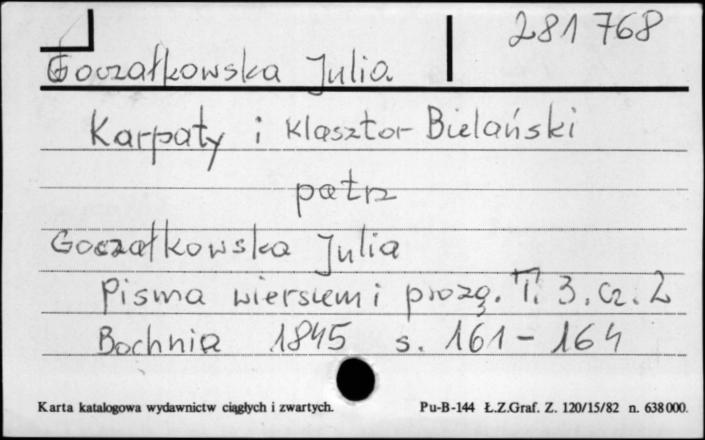 281768
Goczałkowska Julia
Karpaty i klasztor Bielański
patrz
Goczałkowska Julia
Pisma wierszem i prozą. T. 3, cz. 2
Bochnia 1845 s. 161-164
Karta katalogowa wydawnictw ciągłych i zwartych. Pu-B-144 Ł.Z.Graf. Z. 120/15/82 n. 638000.